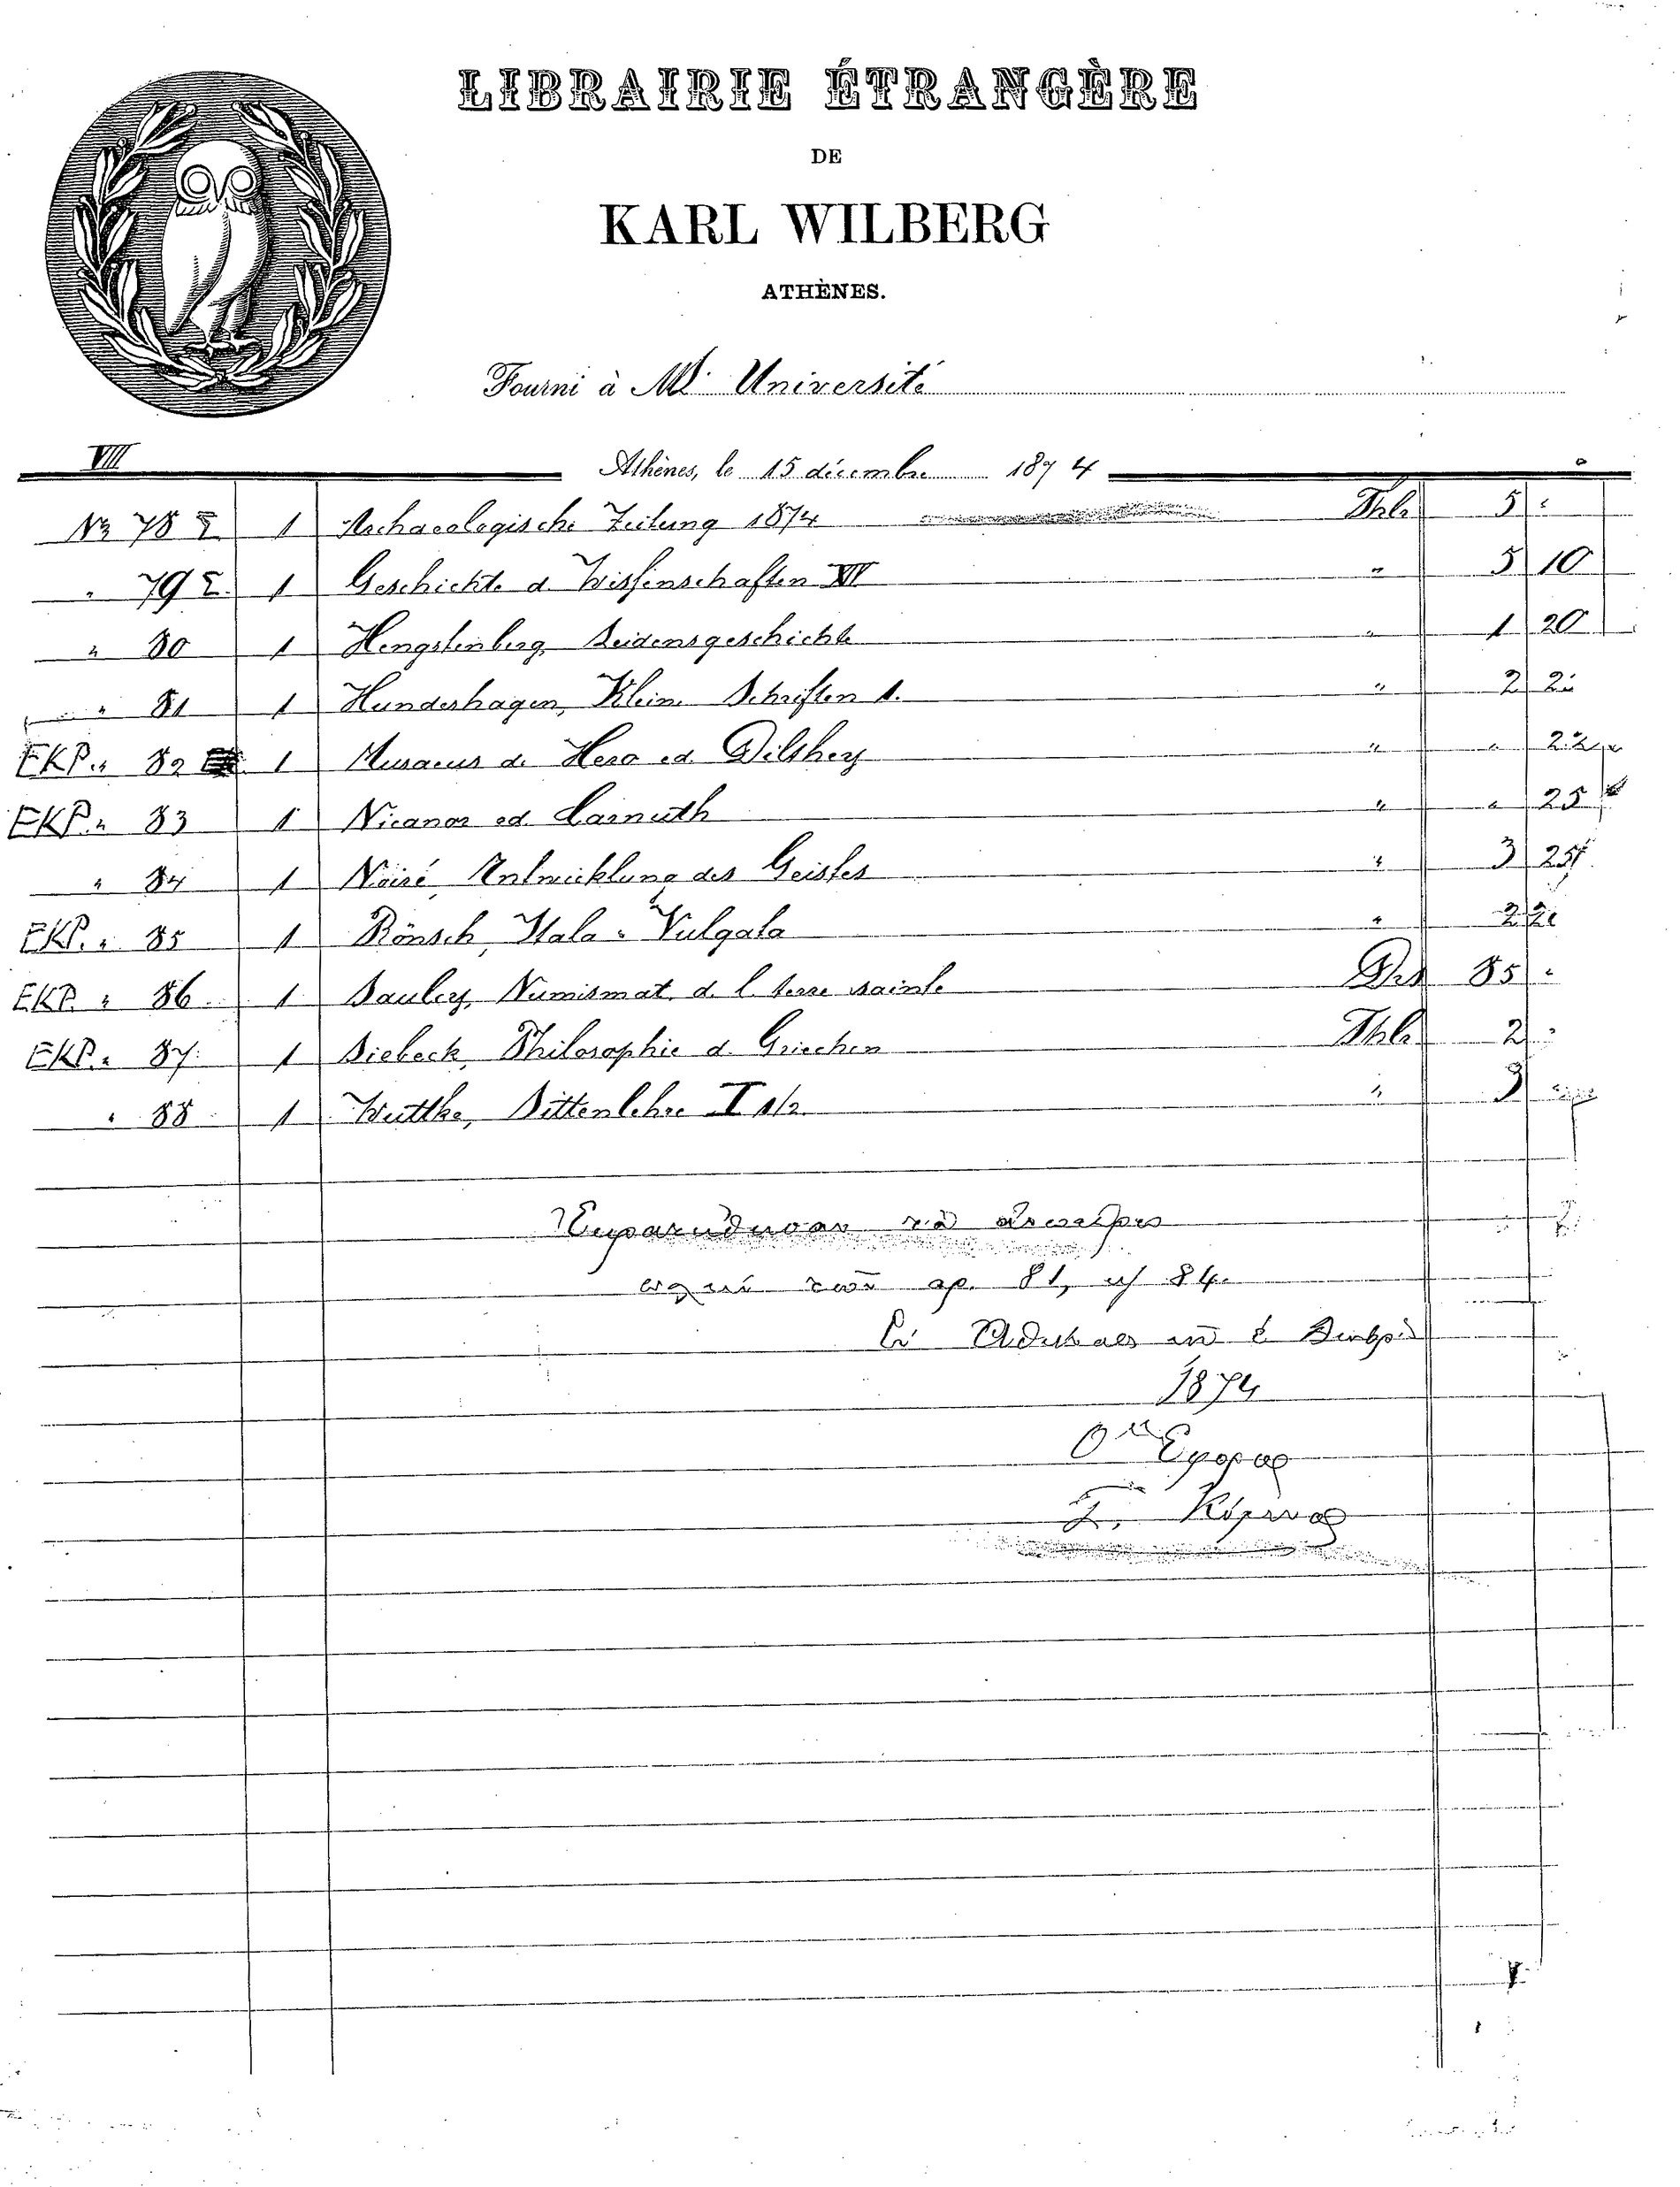 LIBRAIRIE ÉTRANGÈRE
DE
KARL WILBERG
ATHÈNES.
Fourni à Mr Université
VIII
Athènes, le 15 décembre 1874
No 78 Σ 1 Archaeologische Zeitung 1874 Thlr 5 "
" 79 Σ 1 Geschichte d. Wissenschaften XIV " 5 10
" 80 1 Hengstenberg, Leidensgeschichte " 1 20
" 81 1 Hundeshagen, Klein. Schriften 1. " 2 2
EKP. " 82 1 Musaeus de Hero ed Dilthey " " 22
EKP. " 83 1 Nicanor ed. Carnuth " " 25
" 84 1 Noiré, Entwicklung des Geistes " 3 25
EKP. " 85 1 Rönsch, Itala u Vulgata " 2
EKP. " 86 1 Saulcy, Numismat. d. l. terre sainte Drs 85 "
EKP. " 87 1 Siebeck, Philosophie d. Griechen Thlr 2 "
" 88 1 Wuttke, Sittenlehre I 1/2 " 3
τὰ
τῶν ἀρ. 81, 84.
1874
Ὁ Ἔφορος